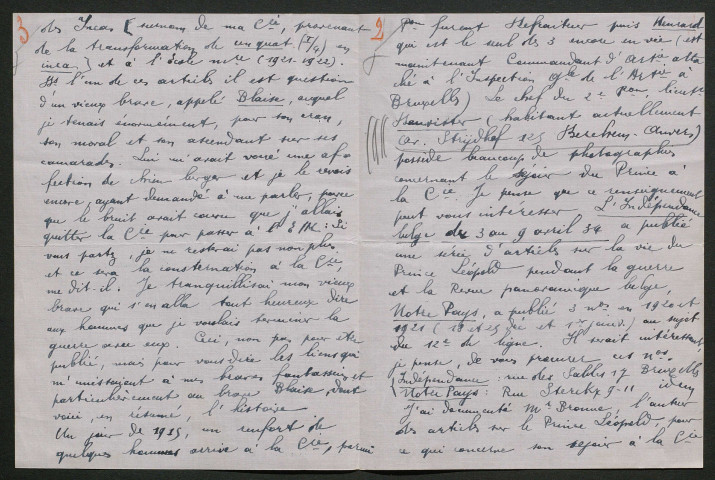 2
Pon furent Defraiteur puis Henrard
qui est le seul des 3 encore en vie (est
maintenant Commandant d'Artie atta
ché à l'Inspection Gle de l'Artie à
Bruxelles) Le chef du 2e Pon, lieutt
(habitant actuellement
Av. Strijdhof 125 Berchem-Anvers)
possède beaucoup de photographies
concernant le séjour du Prince à
la Cie. Je pense que ce renseignement
peut vous intéresser L'Indépendance
belge du 3 au 9 avril 34 a publié
une série d'articles sur la vie du
Prince Léopold pendant la guerre
et la Revue panoramique belge,
Notre Pays, a publié 3 nos en 1920 et
1921 (et 25 déc et 1er janv.) au sujet
du 12e de ligne. Il serait intéressant,
je pense, de vous procurer ces nos.
Indépendance : rue des Sables 17 Bruxelles
Notre Pays : Rue Sterckx 9-11 idem
J'ai documenté Mr Bronne, l'auteur
des articles sur le Prince Léopold, pour
ce qui concerne son séjour à la Cie
3
des Incas [surnom de ma Cie, provenant
de la transformation de un quat. (I/4) en
inca.] et à l'école (1921-1922).
Ds l'un de ces articles il est question
d'un vieux brave, appelé Blaise, auquel
je tenais énormément, pour son cran,
son moral et son ascendant sur ses
camarades. Lui m'avait voué une af-
fection de chien berger et je le revois
encore, ayant demandé à me parler, parce
que le bruit avait couru que j'allais
quitter la Cie pour passer à l'E M : Si
vous partez, je ne resterai pas non plus
et ce sera la consternation à la Cie,
me dit-il. Je tranquillisai mon vieux
brave qui s'en alla tout heureux dire
aux hommes que je voulais terminer la
guerre avec eux. Ceci, non pas pour être
publié, mais pour vous dire les liens qui
m'unissaient à mes braves fantassins et
particulièrement au brave Blaise, dont
voici, en résumé, l'histoire
Un jour de 1915, un renfort de
quelques hommes arrive à la Cie, parmi